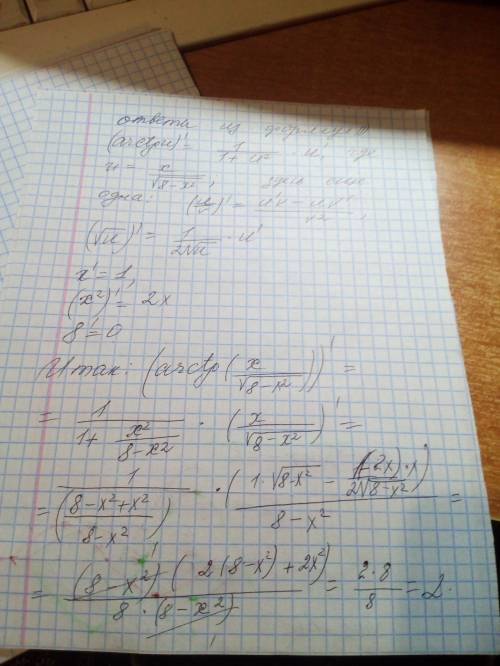 ответа из формул
(arctg u)' = 1/(1+u²) · u', где
u = x/√(8-x²), здесь еще
одна: (u/v)' = (u'v - u v')/v²,
(√u)' = 1/(2√u) · u'
x' = 1,
(x²)' = 2x
8' = 0
Итак: (arctg(x/√(8-x²)))' =
= 1/(1 + x²/(8-x²)) · (x/√(8-x²))' =
= 1/((8-x²+x²)/(8-x²)) · (1·√(8-x²) - (1(-2x)·x)/(2√(8-x²)))/(8-x²) =
= (8-x²)(2(8-x²)+2x²)/(8·(8-x²)) = 2·8/8 = 2.